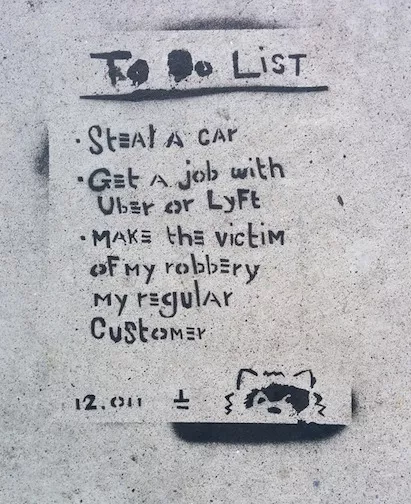 To Do List
• Steal a car
• Get a job with
Uber or Lyft
• Make the victim
of my robbery
my regular
Customer
12.011